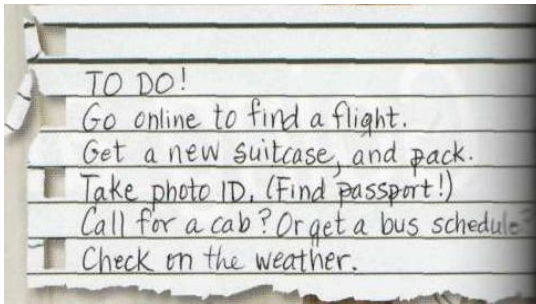 TO DO!
Go online to find a flight.
Get a new suitcase, and pack.
Take photo ID. (Find passport!)
Call for a cab? Or get a bus schedule?
Check on the weather.